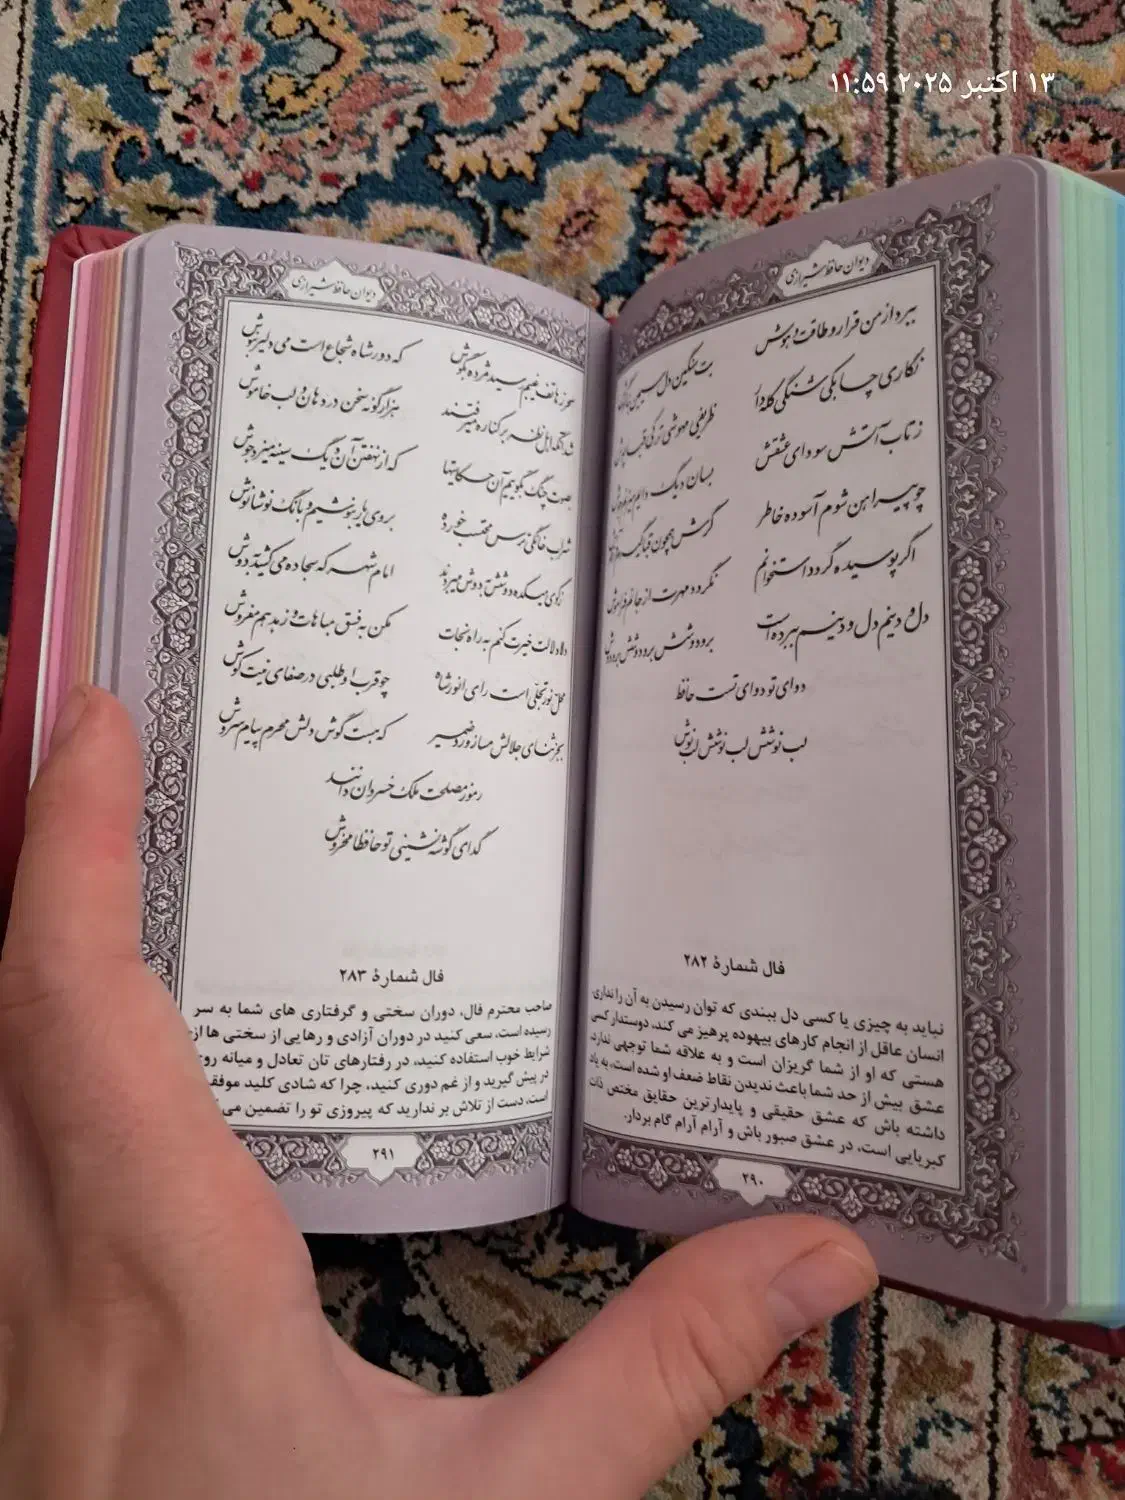 ۱۳ اکتبر ۲۰۲۵ ۱۱:۵۹
دیوان حافظ شیرازی
ببرد از من قرار و طاقت و هوش
بت سنگین دل سیمین بناگوش
نگاری چابکی شنگی کله‌دار
ظریفی مهوشی ترکی قباپوش
ز تاب آتش سودای عشقش
بسان دیگ دایم می‌زنم جوش
چو پیراهن شوم آسوده خاطر
گرش همچون قبا گیرم در آغوش
اگر پوسیده گردد استخوانم
نگردد مهرت از جانم فراموش
دل و دینم دل و دینم ببرده است
برو دوشش برو دوشش برو دوش
دوای تو دوای تست حافظ
لب نوشش لب نوشش لب نوش
فال شمارهٔ ۲۸۲
نباید به چیزی یا کسی دل ببندی که توان رسیدن به آن را نداری.
انسان عاقل از انجام کارهای بیهوده پرهیز می کند، دوستدار کسی
هستی که او از شما گریزان است و به علاقه شما توجهی ندارد،
عشق بیش از حد شما باعث ندیدن نقاط ضعف او شده است، به یاد
داشته باش که عشق حقیقی و پایدارترین حقایق مختص ذات
کبریایی است، در عشق صبور باش و آرام آرام گام بردار.
۲۹۰
دیوان حافظ شیرازی
سحر ز هاتف غیبم رسید مژده بگوش
که دور شاه شجاع است می دلیر بنوش
شد آنکه اهل نظر بر کناره میرفتند
هزار گونه سخن در دهان و لب خاموش
بصوت چنگ بگوییم آن حکایتها
که از نهفتن آن دیگ سینه میزد جوش
شراب خانگی ترس محتسب خورده
بروی یار بنوشیم و بانگ نوشانوش
ز کوی میکده دوشش بدوش میبردند
امام شهر که سجاده می کشید بدوش
دلا دلالت خیرت کنم به راه نجات
مکن به فسق مباهات و زهد هم مفروش
محل نور تجلی است رای انور شاه
چو قرب او طلبی در صفای نیت کوش
بجز ثنای جلالش مساز ورد ضمیر
که هست گوش دلش محرم پیام سروش
رموز مصلحت ملک خسروان دانند
گدای گوشه نشینی تو حافظا مخروش
فال شمارهٔ ۲۸۳
صاحب محترم فال، دوران سختی و گرفتاری های شما به سر
رسیده است، سعی کنید در دوران آزادی و رهایی از سختی ها از
شرایط خوب استفاده کنید، در رفتارهای تان تعادل و میانه روی
در پیش گیرید و از غم دوری کنید، چرا که شادی کلید موفقیت
است، دست از تلاش بر ندارید که پیروزی تو را تضمین می
۲۹۱